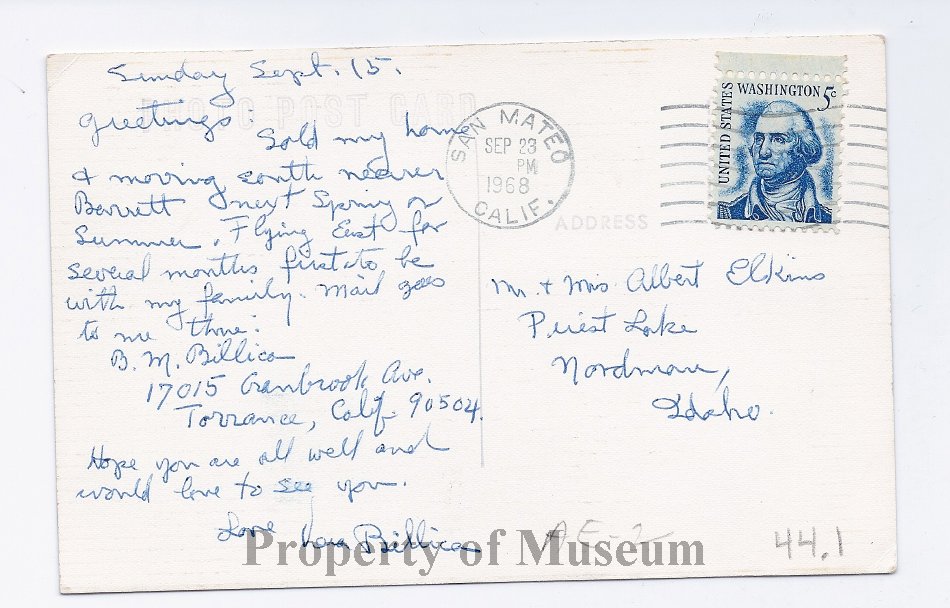 Sunday Sept. 15.
PHOTO POST CARD
Greetings.
Sold my home
& moving south nearer
Barrett next Spring or
Summer. Flying East for
several months first to be
with my family. Mail goes
to me thru:
B. M. Billica
17015 Cranbrook Ave.
Torrance, Calif. 90504.
Hope you are all well and
would love to see you.
Love
Billica
SAN MATEO
SEP 23
PM
1968
CALIF.
UNITED STATES
WASHINGTON 5c
ADDRESS
Mr. & Mrs Albert Elkins
Priest Lake
Nordman,
Idaho.
AE-2
44.1
Property of Museum